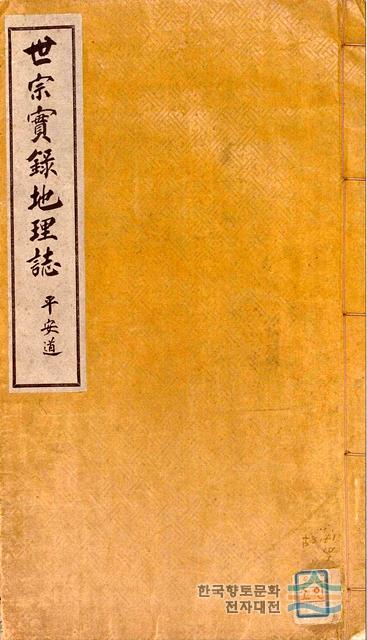 世宗實錄地理誌 平安道
한국향토문화
전자대전